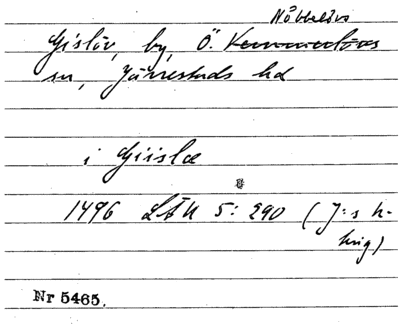 Nöbbelövs
Gislöv, by, Ö. Kemmelövs
sn, Järrestads hd
i Giislæ
1496 LÄU 5: 290 (J:s h-
krig)
Nr 5465.